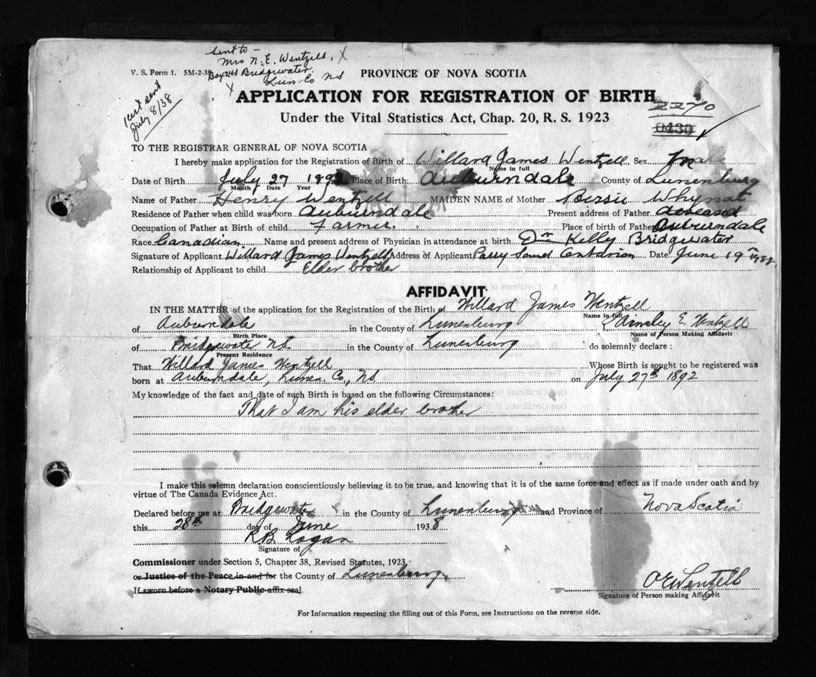 sent to -
Mrs N. E. Wentzell,
V. S. Form 1. 5M-2-38 Bridgewater
PROVINCE OF NOVA SCOTIA
Lun. Co NS
cert sent
July 8/38
APPLICATION FOR REGISTRATION OF BIRTH
2270
Under the Vital Statistics Act, Chap. 20, R. S. 1923
0430
TO THE REGISTRAR GENERAL OF NOVA SCOTIA
I hereby make application for the Registration of Birth of Willard James Wentzell Sex male
Name in full
Date of Birth July 27 1892 Place of Birth Auburndale County of Lunenburg
Month Day Year
Name of Father Henry Wentzell MAIDEN NAME of Mother Bersie Whynot
Residence of Father when child was born Auburndale Present address of Father deceased
Occupation of Father at Birth of child Farmer. Place of birth of Father Auburndale
Race Canadian Name and present address of Physician in attendance at birth Dr Kelly Bridgewater
Signature of Applicant Willard James Wentzell Address of Applicant Parry Sound Ontario Date June 19th 1938
Relationship of Applicant to child Elder brother
AFFIDAVIT
IN THE MATTER of the application for the Registration of the Birth of Willard James Wentzell
Name in full
of Auburndale in the County of Lunenburg I, Ainsley E. Wentzell
Birth Place Name of Person Making Affidavit
of Bridgewater N.S. in the County of Lunenburg do solemnly declare :
Present Residence
That Willard James Wentzell Whose Birth is sought to be registered was
born at Auburndale, Lunen. Co, NS on July 27th 1892
My knowledge of the fact and date of such Birth is based on the following Circumstances:
That I am his elder brother
I make this solemn declaration conscientiously believing it to be true, and knowing that it is of the same force and effect as if made under oath and by
virtue of The Canada Evidence Act.
Declared before me at Bridgewater in the County of Lunenburg and Province of Nova Scotia
this 28th day of June 1938
R.B. Logan
Signature of
Commissioner under Section 5, Chapter 38, Revised Statutes, 1923,
or Justice of the Peace in and for the County of Lunenburg.
[If sworn before a Notary Public affix seal]
A E Wentzell
Signature of Person making Affidavit
For Information respecting the filling out of this Form, see Instructions on the reverse side.